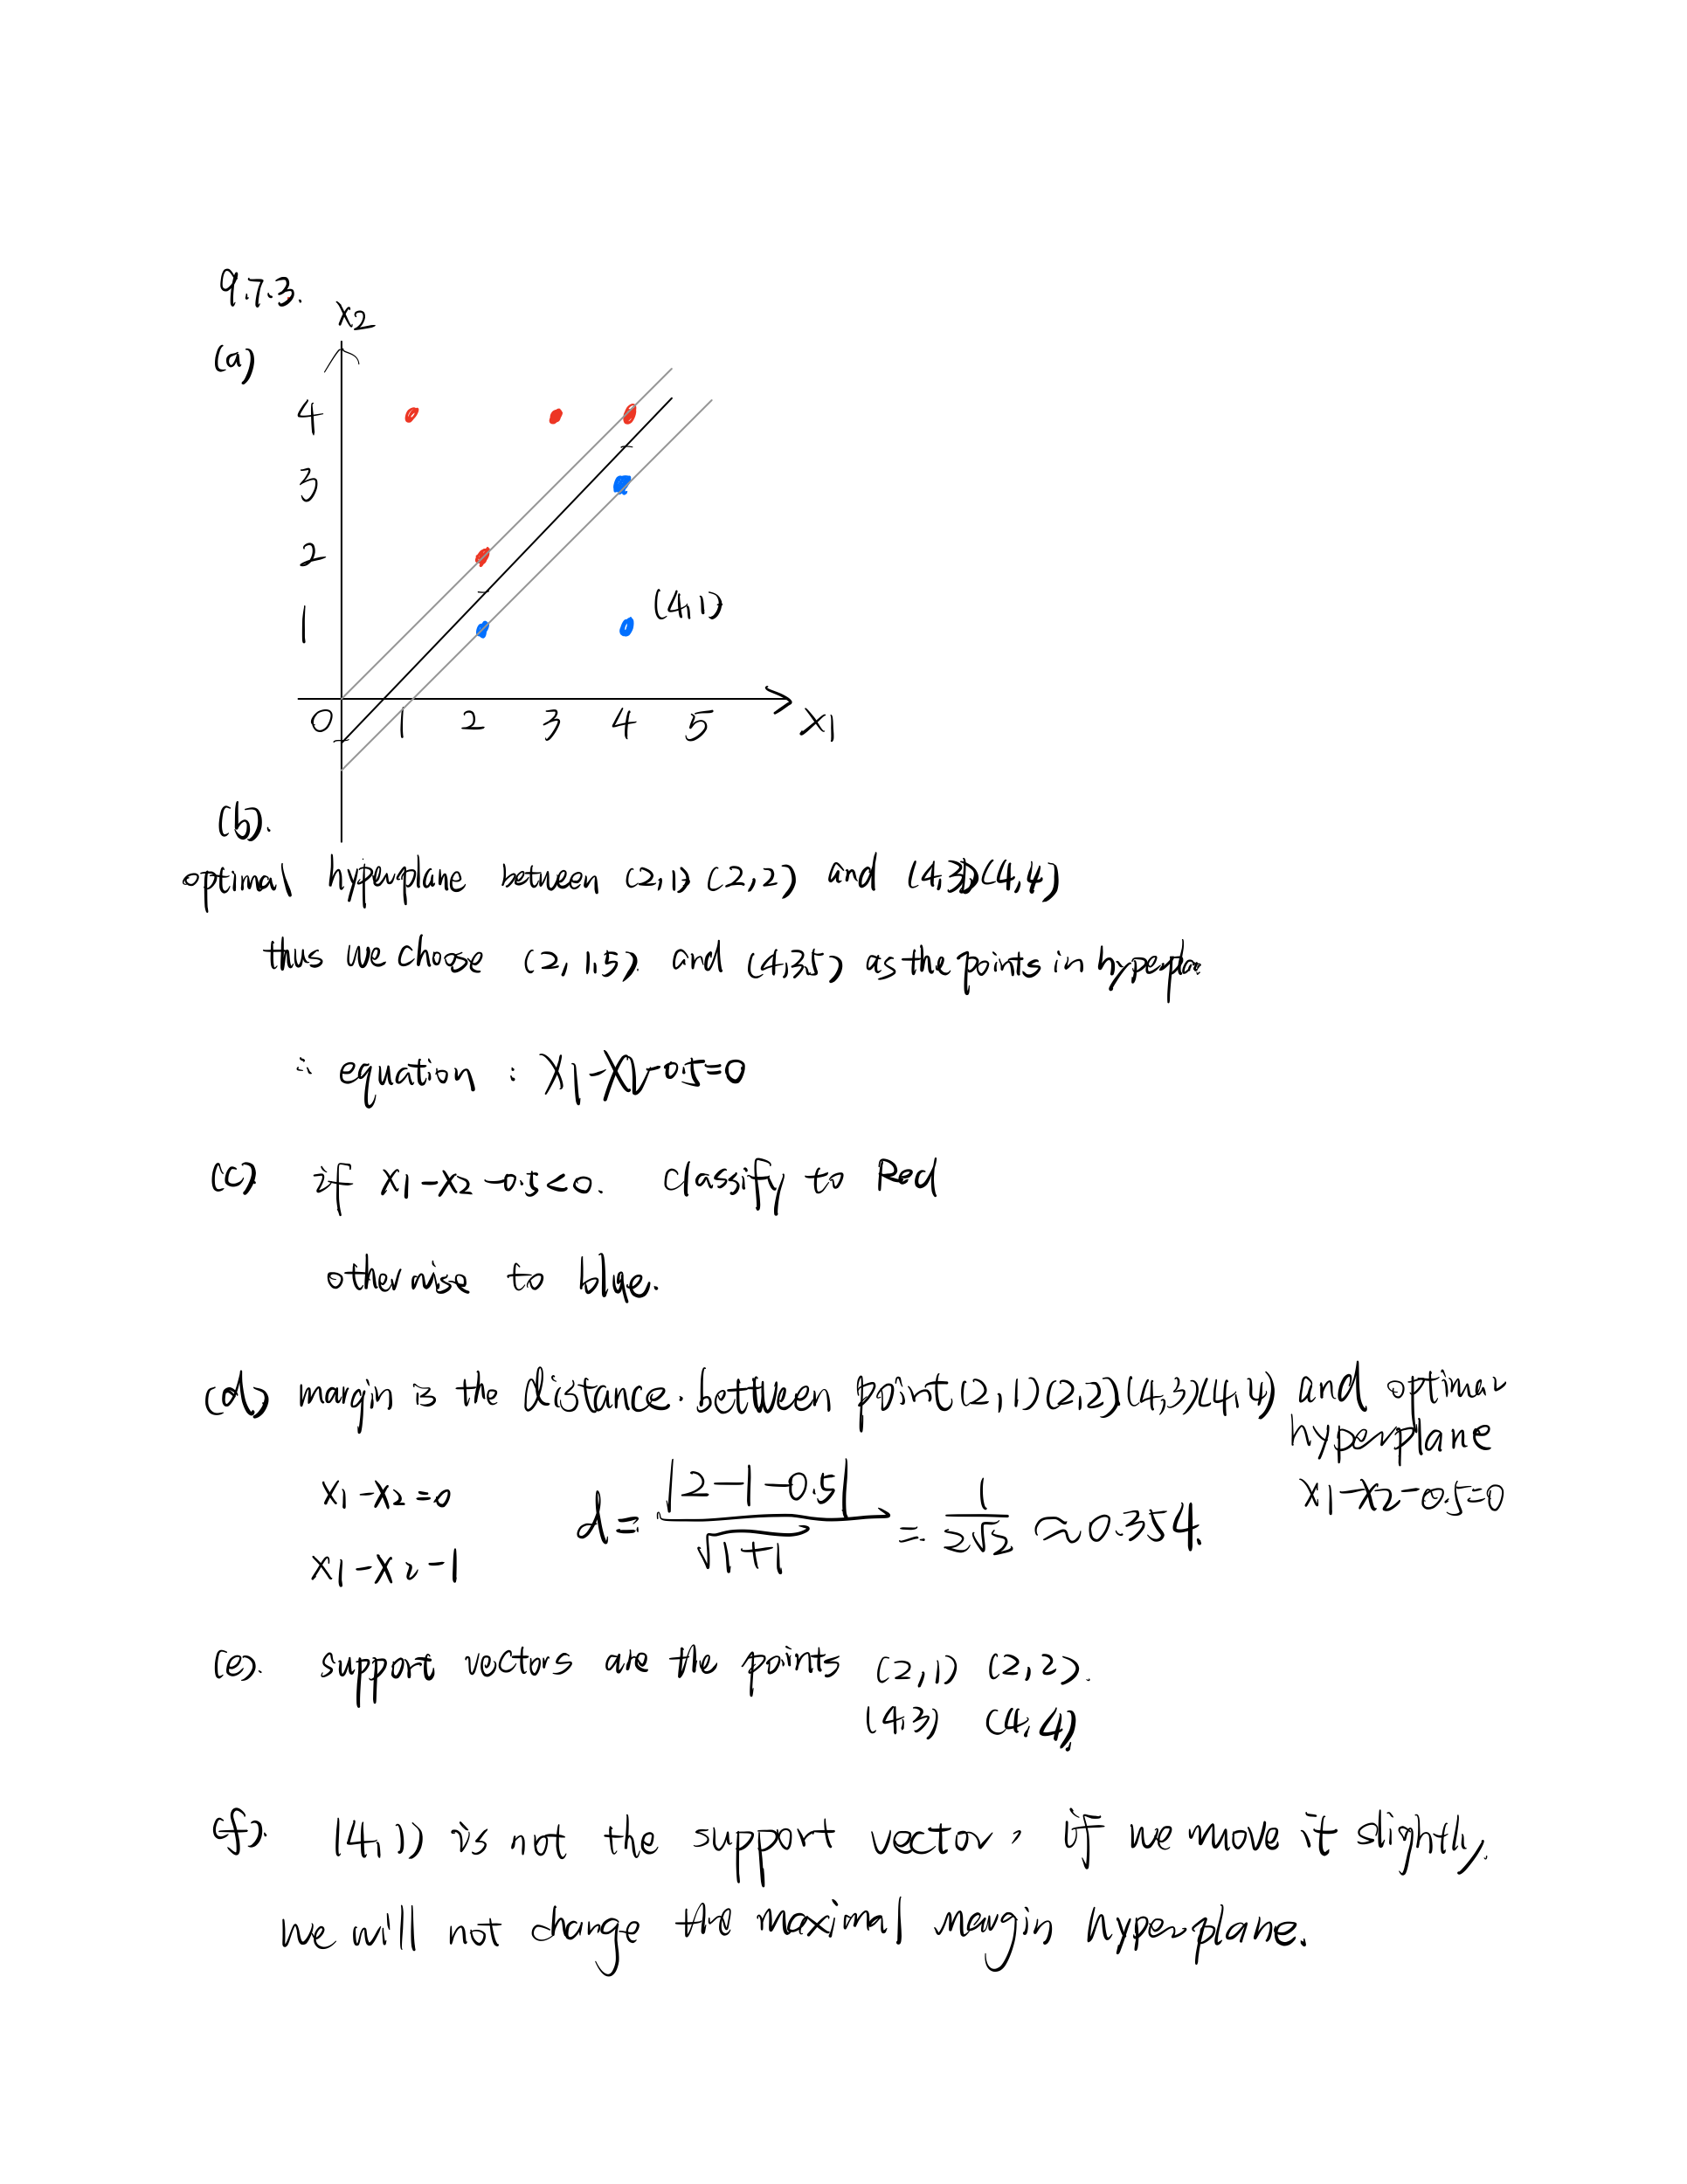 9.7.3.
x2
(a)
4
3
2
1
(4,1)
0 1 2 3 4 5 x1
(b).
optimal hyperplane between (2,1) (2,2) and (4,3)(4,4)
thus we choose (2,1.5) and (4,3.5) as the points in hyperpla
∴ equation : X1-X2-0.5=0
(c) if x1-x2-0.5<0. classify to Red
otherwise to blue.
(d) margin is the distance. between point (2,1)(2,2)(4,3)(4,4) and optimal
hyperplane
x1-x2-0.5=0
x1-x2=0
x1-x2-1
d= |2-1-0.5| / √1+1 = 1/2√2 ≈0.354.
(e). support vectors are the points (2,1) (2,2).
(4,3) (4,4).
(f). (4,1) is not the support vector, if we move it slightly,
we will not change the maximal margin hyperplane.